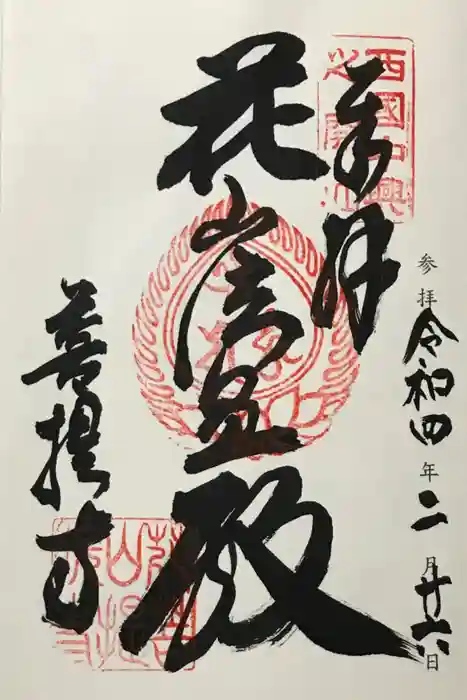 参拝令和四年二月廿六日
奉拝
花山法皇殿
菩提寺
西國中興